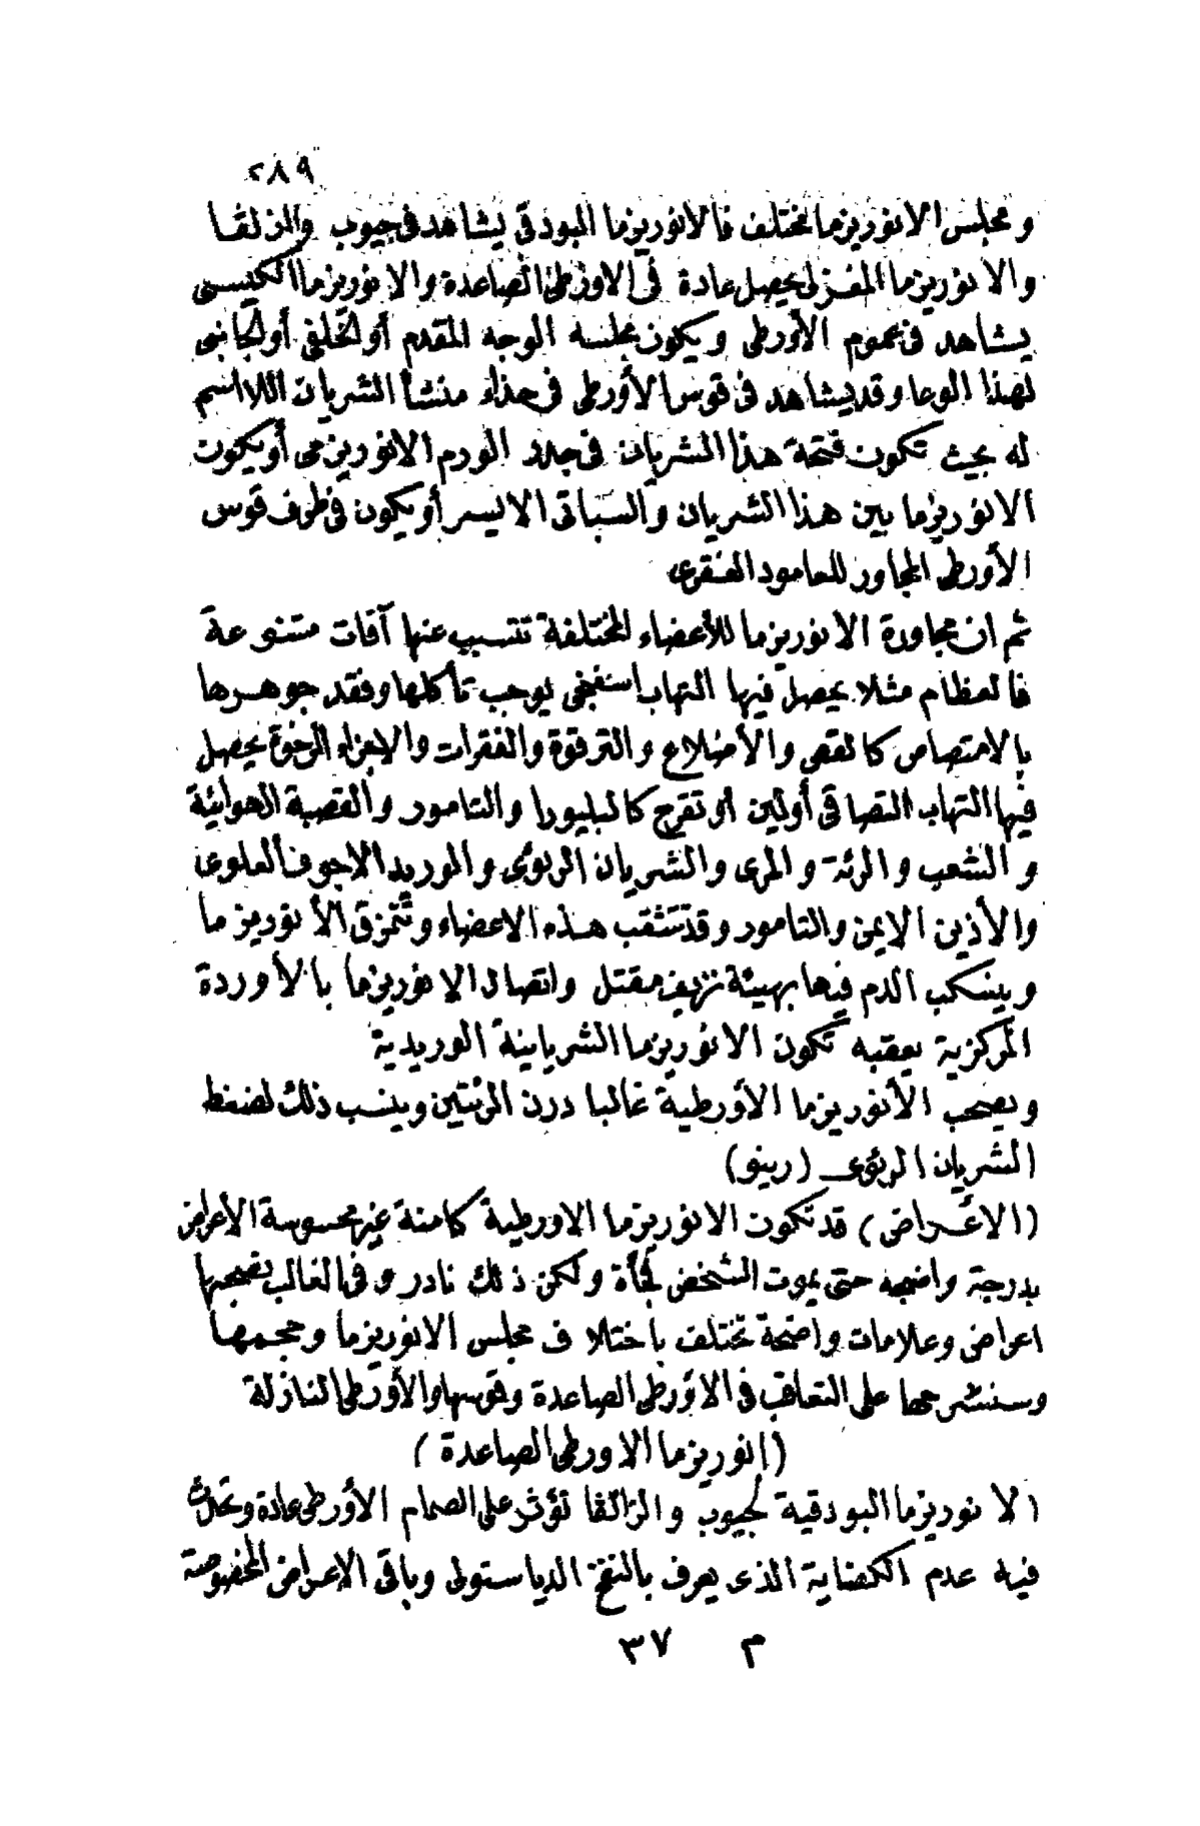 ٢٨٩
ومجلس الانوريزما مختلف فالانوريزما البودقي يشاهد في جيوب والزلفا
والانوريزما المغزلي يحصل عادة في الاورطى الصاعدة والانوريزما الكيسى
يشاهد في عموم الأورطى ويكون مجلسه الوجه المقدم أو الخلفي أو الجانبى
لهذا الوعا وقد يشاهد في قوس الأورطى في حذاء منشأ الشريان اللااسم
له بحيث تكون فتحة هذا الشريان في جدر الورم الانوريزمى أو يكون
الانوريزما بين هذا الشريان والسباتى الايسر أو يكون في ظرف قوس
الأورطى المجاور للعامود الفقرى
ثم ان مجاورة الانوريزما للأعضاء المختلفة تتسبب عنها آفات متنوعة
فالعظام مثلا يحصل فيها التهاب اسفنجى يوجب تأكلها وفقد جوهرها
بالامتصاص كالقص والأضلاع والترقوة والفقرات والاجزاء الرخوة يحصل
فيها التهاب التصاقى أولين أو تقرح كالبليورا والتامور والقصبة الهوائية
والشعب والرئة والمرى والشريان الرئوى والوريد الاجوف العلوى
والأذين الايمن والتامور وقد تثقب هذه الاعضاء وتتمزق الأنوريزما
وينسكب الدم فيها بهيئة نزيف مقتل واتصال الانوريزما بالأوردة
المركزية يعقبه تكون الانوريزما الشريانية الوريدية
ويصحب الأنوريزما الأورطية غالبا درن الرئتين وينسب ذلك لضغط
الشريان الرئوى (رينو)
(الاعراض) قد تكون الانوريزما الاورطية كامنة غير محسوسة الأعراض
بدرجة واضحه حتى يموت الشخص فجأة ولكن ذلك نادر وفي الغالب يصحبها
اعراض وعلامات واضحة تختلف باختلاف مجلس الانوريزما وحجمها
وسنشرحها على التعاقب في الاورطى الصاعدة وقوسها والأورطى النازلة
(انوريزما الاورطى الصاعدة)
الانوريزما البودقية لجيوب والزالفا تؤثر على الصمام الأورطى عادة وتحدث
فيه عدم الكفاية الذى يعرف بالنفخ الدياستولى وباقى الاعراض المخصوصة
م ٣٧